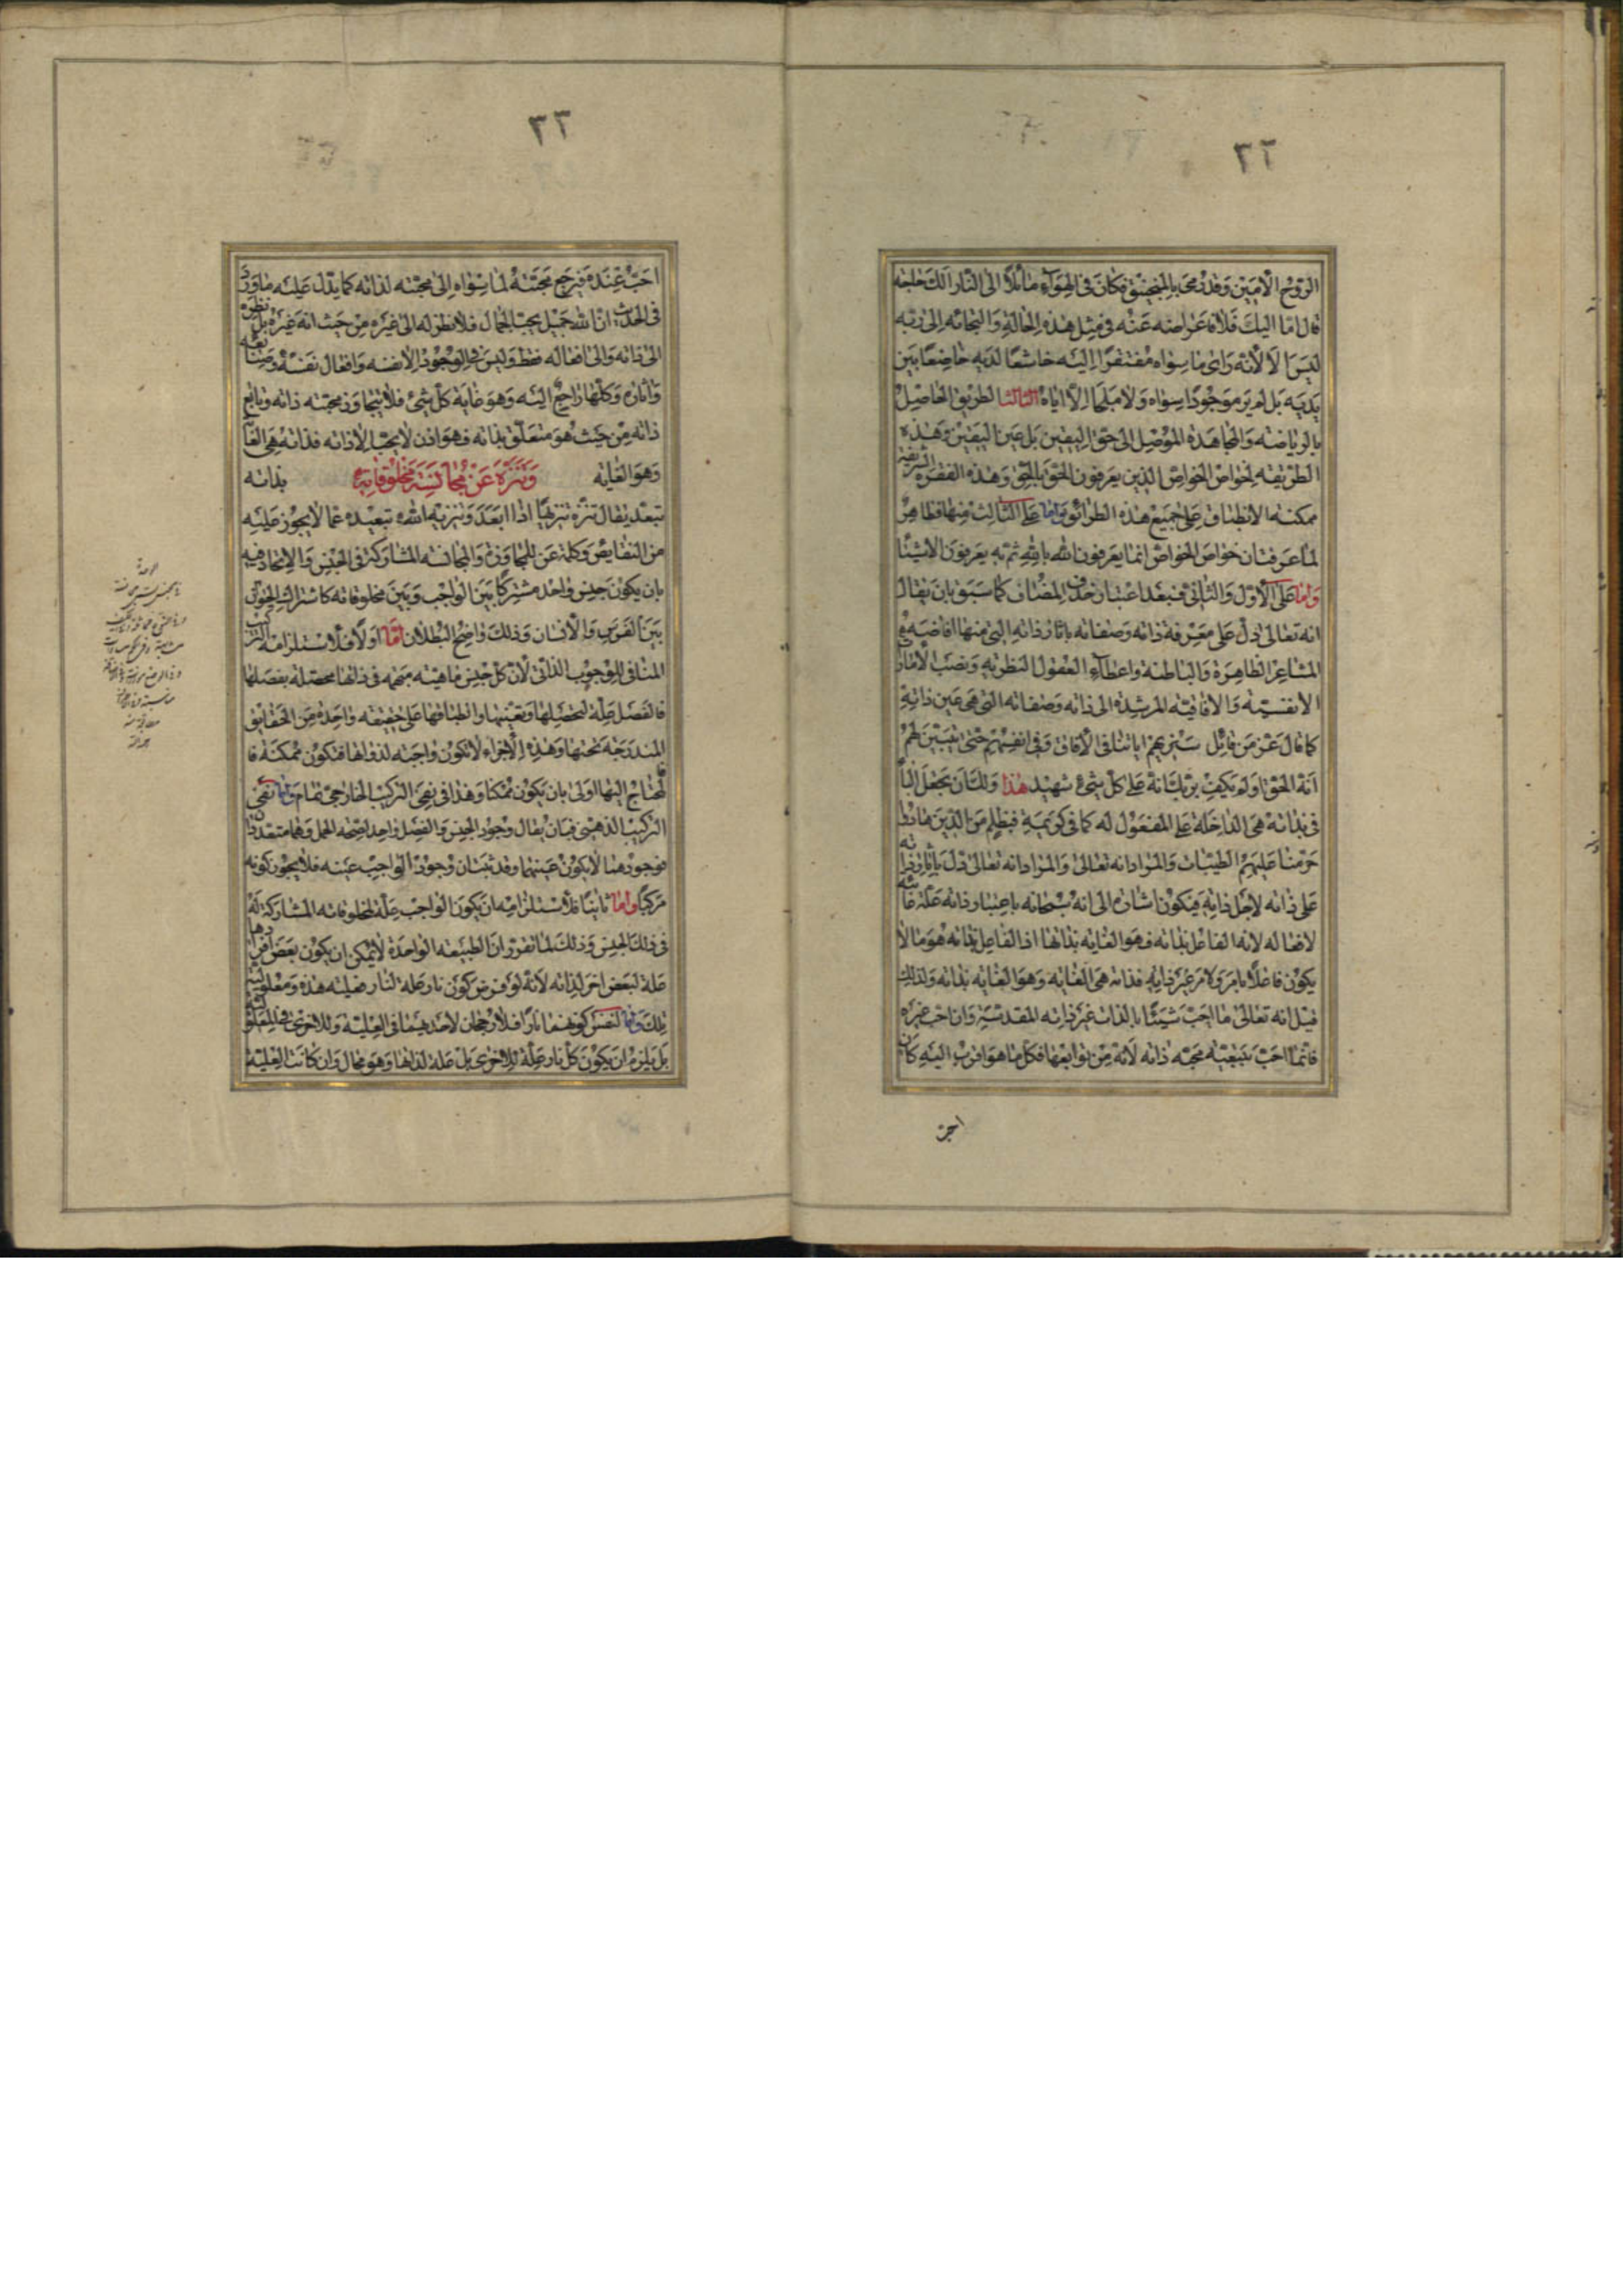 ٢٢
الروح الامين وقد رمى بالمنجنيق فكان في الهواء مائلا الى النار الك حاجة
قال اما اليك فلا فاعراضه عنه في مثل هذه الحالة والتجائه الى ربه
ليس الا لانه راى ما سواه مفتقرا اليه خاشعا لديه خاضعا بين
يديه بل لم ير موجودا سواه ولا ملجا الا اياه الثالث الطريق الحاصل
بالرياضة والمجاهدة الموصل الى حق اليقين بل عين اليقين وهذه
الطريقة لخواص الخواص الذين يعرفون الحق بالحق وهذه الفقرة الشريفة
ممكنة الانطباق على جميع هذه الطرائق واما على الثالث منها فظاهر
لما عرفت ان خواص الخواص انما يعرفون الله بالله ثم به يعرفون الاشيا
واما على الاول والثاني فبعد اعتبار حذف المضاف كما سبق بان يقال
انه تعالى دل على معرفة ذاته وصفاته باثار ذاته التي منها افاضة
المشاعر الظاهرة والباطنة واعطاء العقول النظرية ونصب الامار
الانفسية والافاقية المرشدة الى ذاته وصفاته التي هي عين ذاته
كما قال عز من قائل سنريهم اياتنا في الافاق وفي انفسهم حتى يتبين لهم
انه الحق اولم يكف بربك انه على كل شيء شهيد هذا ولك ان تجعل البا
في بذاته هي الداخلة على المفعول له كما في كريمة فبظلم من الذين هادوا
حرمنا عليهم الطيبات والمراد انه تعالى دل باثار ذاته
على ذاته لاجل ذاته فيكون اشارة الى انه سبحانه باعتبار ذاته علة غائية
لافعاله لانه الفاعل بذاته فهو الغاية بذاتها اذ الفاعل بذاته هو ما لا
يكون فاعلا بامر ولا من غير ذاته فذاته هي الغاية وهو الغاية بذاته ولذلك
قيل انه تعالى ما احب شيئا بالذات غير ذاته المقدسة وان احب غيره
فانما احب بتبعية محبة ذاته لانه من توابعها فكل ما هو اقرب اليه كان
احب
٢٣
احب عنده فيرجع محبته لما سواه الى محبته لذاته كما يدل عليه ما ورد
في الحديث ان الله جميل يحب الجمال فلا نظر له الى غيره من حيث انه غيره بل نظره
الى ذاته والى افعاله فقط وليس في الوجود الا نفسه وافعال نفسه وصنايعه
واثاره وكلها راجع اليه وهو غاية كل شيء فلا يتجاوز محبته ذاته وتوابع
ذاته من حيث هو متعلق بذاته فهو اذن لا يحب الا ذاته فذاته هي الغاية
وهو الغاية بذاته وتنزه عن مجانسة مخلوقاته
تبعد يقال تنزه تنزها اذا ابعد وتنزيه الله تبعيده عما لا يجوز عليه
من النقايص وكلمة عن للمجاوزة والمجانسة المشاركة في الجنس والاتحاد فيه
بان يكون جنس واحد مشتركا بين الواجب وبين مخلوقاته كاشتراك الحيوان
بين الفرس والانسان وذلك واضح البطلان اما اولا فلاستلزامه التركيب
المنافي للوجوب الذاتي لان كل جنس ماهيته مبهمة في ذاتها محصلة بفصلها
فالفصل علة لتحصيلها وتعينها وانطباقها على حقيقة واحدة من الحقايق
المندرجة تحتها وهذه الاجزاء لا تكون واجبة لذواتها فتكون ممكنة فا
لمحتاج اليها اولى بان يكون ممكنا وهذا في نفي التركيب الخارجي تمام واما نفي
التركيب الذهني فبان يقال وجود الجنس والفصل واحد لصحة الحمل وهما متعددان
فوجودهما لا يكون عينهما وقد ثبت ان وجود الواجب عينه فلا يجوز كونه
مركبا واما ثانيا فلاستلزامه ان يكون الواجب علة لمخلوقاته المشاركة له
في ذلك الجنس وذلك لما تقرر ان الطبيعة الواحدة لا يمكن ان يكون بعض افرادها
علة لبعض اخر لذاته لانه لو فرض كون نار علة لنار فعلية هذه ومعلولية
تلك اما لنفس كونهما نارا فلا رجحان لاحديهما في العلية وللاخرى في المعلولية
بل يلزم ان يكون كل نار علة للاخرى بل علة لذاتها وهو محال وان كانت العلية